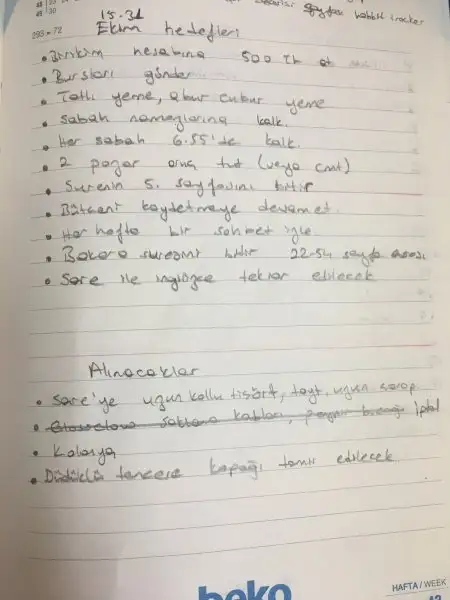 295-72
15-31
Ekim hedefleri
• Birikim hesabına 500 TL at
• Bursları gönder
• Tatlı yeme, abur cubur yeme
• Sabah namazlarına kalk.
• Her sabah 6.55'te kalk.
• 2 pazar oruç tut (veya cmt)
• Surenin 5. sayfasını bitir
• Bütçeni kaydetmeye devam et.
• Her hafta bir sohbet izle.
• Bakara suresini bitir 22-54 sayfa arası
• Sare ile ingilizce tekrar edilecek
Alınacaklar
• Sare'ye uzun kollu tişört, tayt, uzun çorap
• saklama kabları, peynir bıçağı İptal
• Kolonya
• Düdüklü tencere kapağı tamir edilecek
beko
HAFTA / WEEK